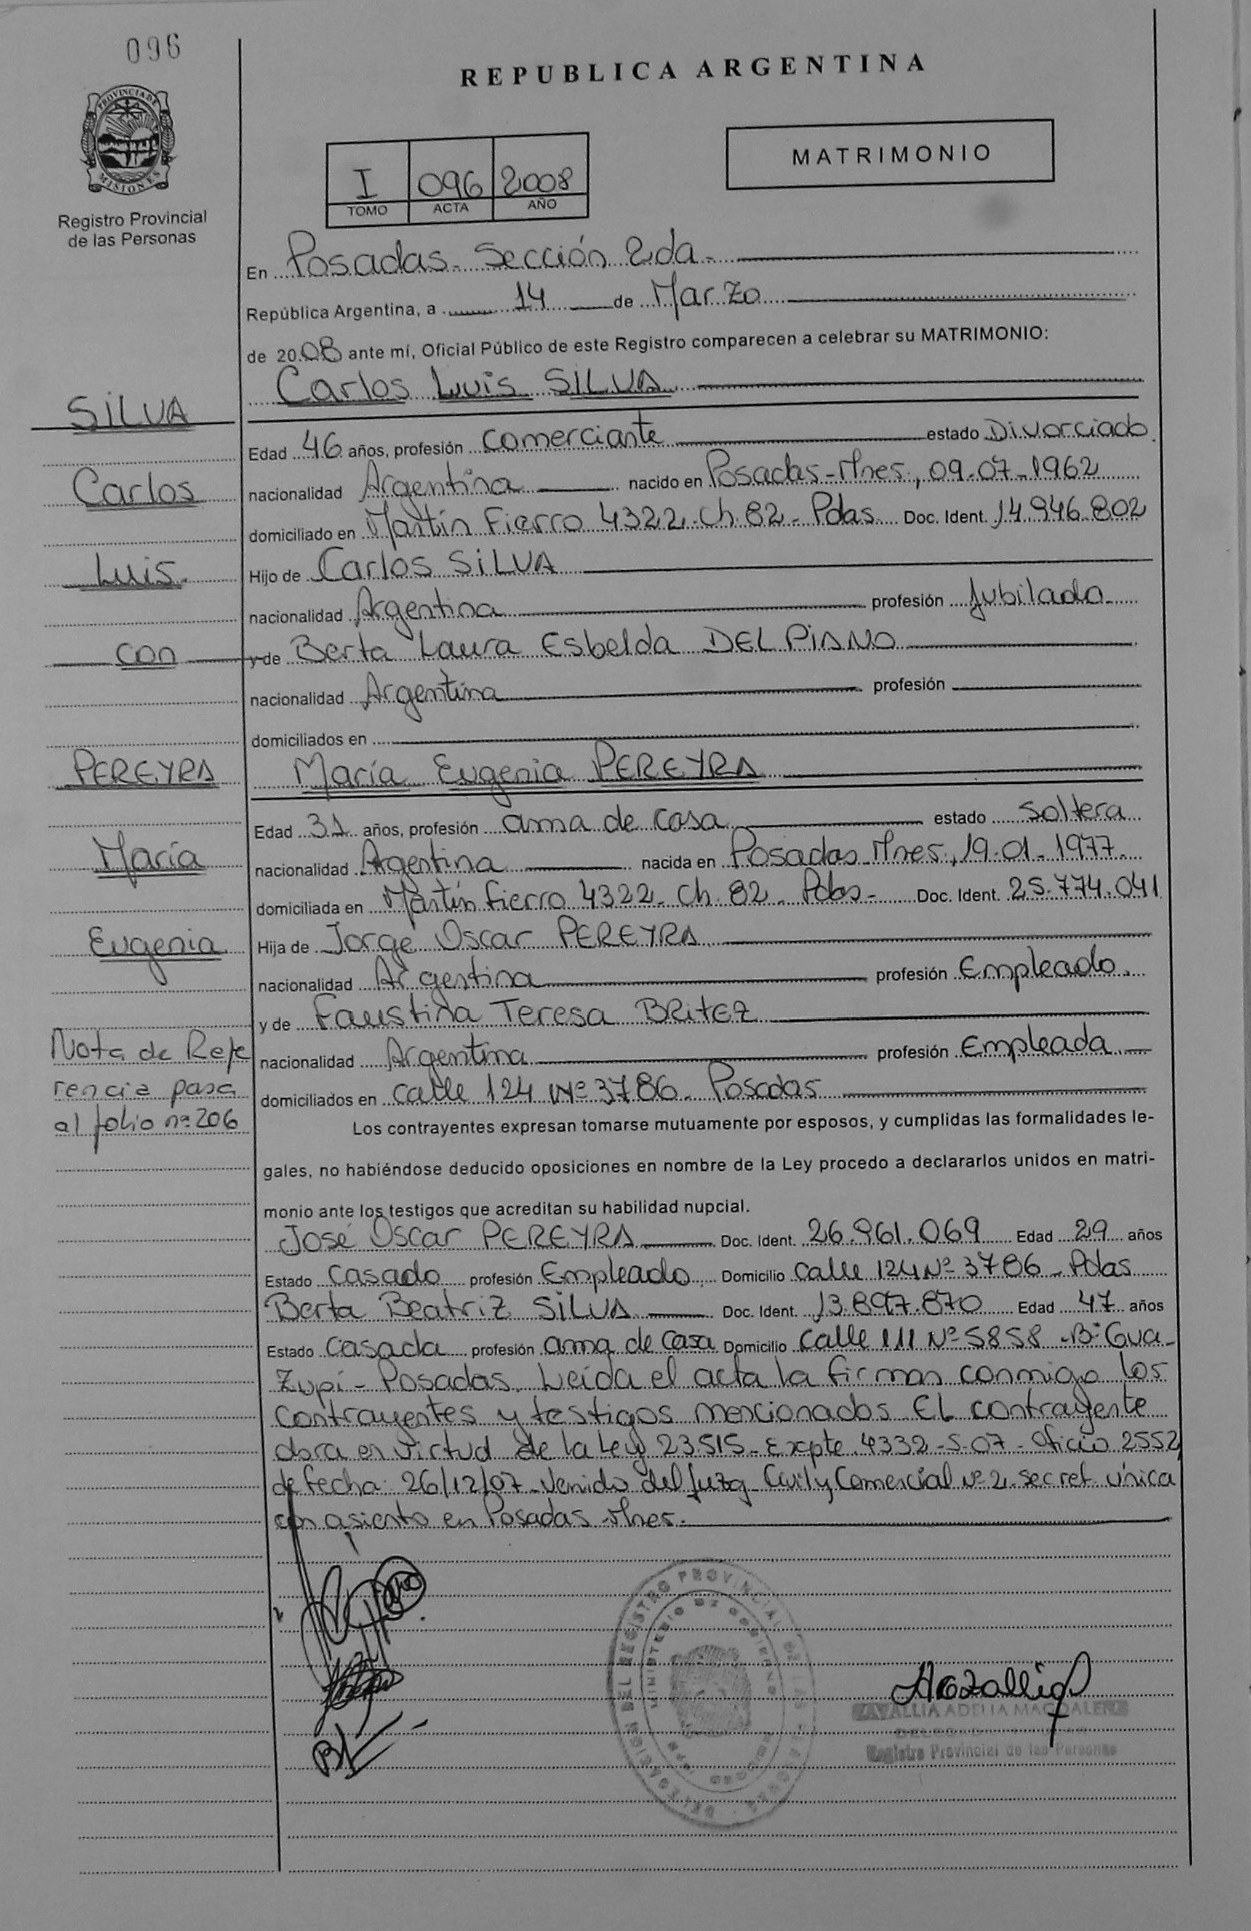 096
REPUBLICA ARGENTINA
PROVINCIA DE
MISIONES
Registro Provincial
de las Personas
I 096 2008
TOMO ACTA AÑO
MATRIMONIO
En Posadas - Sección 2da -
República Argentina, a 14 de Marzo
de 2008 ante mí, Oficial Público de este Registro comparecen a celebrar su MATRIMONIO:
Carlos Luis SILVA
SILVA
Edad 46 años, profesión comerciante estado Divorciado
Carlos
nacionalidad Argentina nacido en Posadas - Mnes, 09-07-1962
domiciliado en Martín Fierro 4322 - Ch. 82 - Pdas Doc. Ident. 14.946.802
Luis
Hijo de Carlos SILVA
nacionalidad Argentina profesión Jubilado
con
y de Berta Laura Esbelda DEL PIANO
nacionalidad Argentina profesión
domiciliados en
PEREYRA
María Eugenia PEREYRA
Edad 31 años, profesión ama de casa estado Soltera
María
nacionalidad Argentina nacida en Posadas Mnes, 19-01-1977
domiciliada en Martín Fierro 4322 - Ch 82 - Pdas - Doc. Ident. 25.774.041
Eugenia
Hija de Jorge Oscar PEREYRA
nacionalidad Argentina profesión Empleado
y de Faustina Teresa BRITEZ
Nota de Refe
rencia pasa
al folio nº 206
nacionalidad Argentina profesión Empleada
domiciliados en calle 124 Nº 3786 - Posadas
Los contrayentes expresan tomarse mutuamente por esposos, y cumplidas las formalidades le-
gales, no habiéndose deducido oposiciones en nombre de la Ley procedo a declararlos unidos en matri-
monio ante los testigos que acreditan su habilidad nupcial.
José Oscar PEREYRA Doc. Ident. 26.961.069 Edad 29 años
Estado Casado profesión Empleado Domicilio calle 124 Nº 3786 - Pdas
Berta Beatriz SILVA Doc. Ident. 13.897.870 Edad 47 años
Estado Casada profesión ama de casa Domicilio calle 111 Nº 5858 - Bº Gua-
zupí - Posadas. Leída el acta la firman conmigo los
contrayentes y testigos mencionados. El contrayente
obra en virtud de la Ley 23515 - Expte. 4332-S-07 - Oficio 2552
de fecha 26/12/07 - Venido del Juzg. Civil y Comercial Nº 2 - secret. única
con asiento en Posadas - Mnes.
ZAVALLIA ADELIA MAGDALENA
Registro Provincial de las Personas